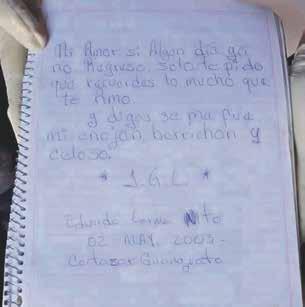 Mi Amor si Algun dia ya
no Regreso solo te pido
que recuerdes lo mucho que
te Amo.
y digas se me fue
mi enojon, berrichon y
celoso.
* J.G.L *
Eduardo Lerma Nito
02 MAY. 2003-
Cortazar Guanajuato